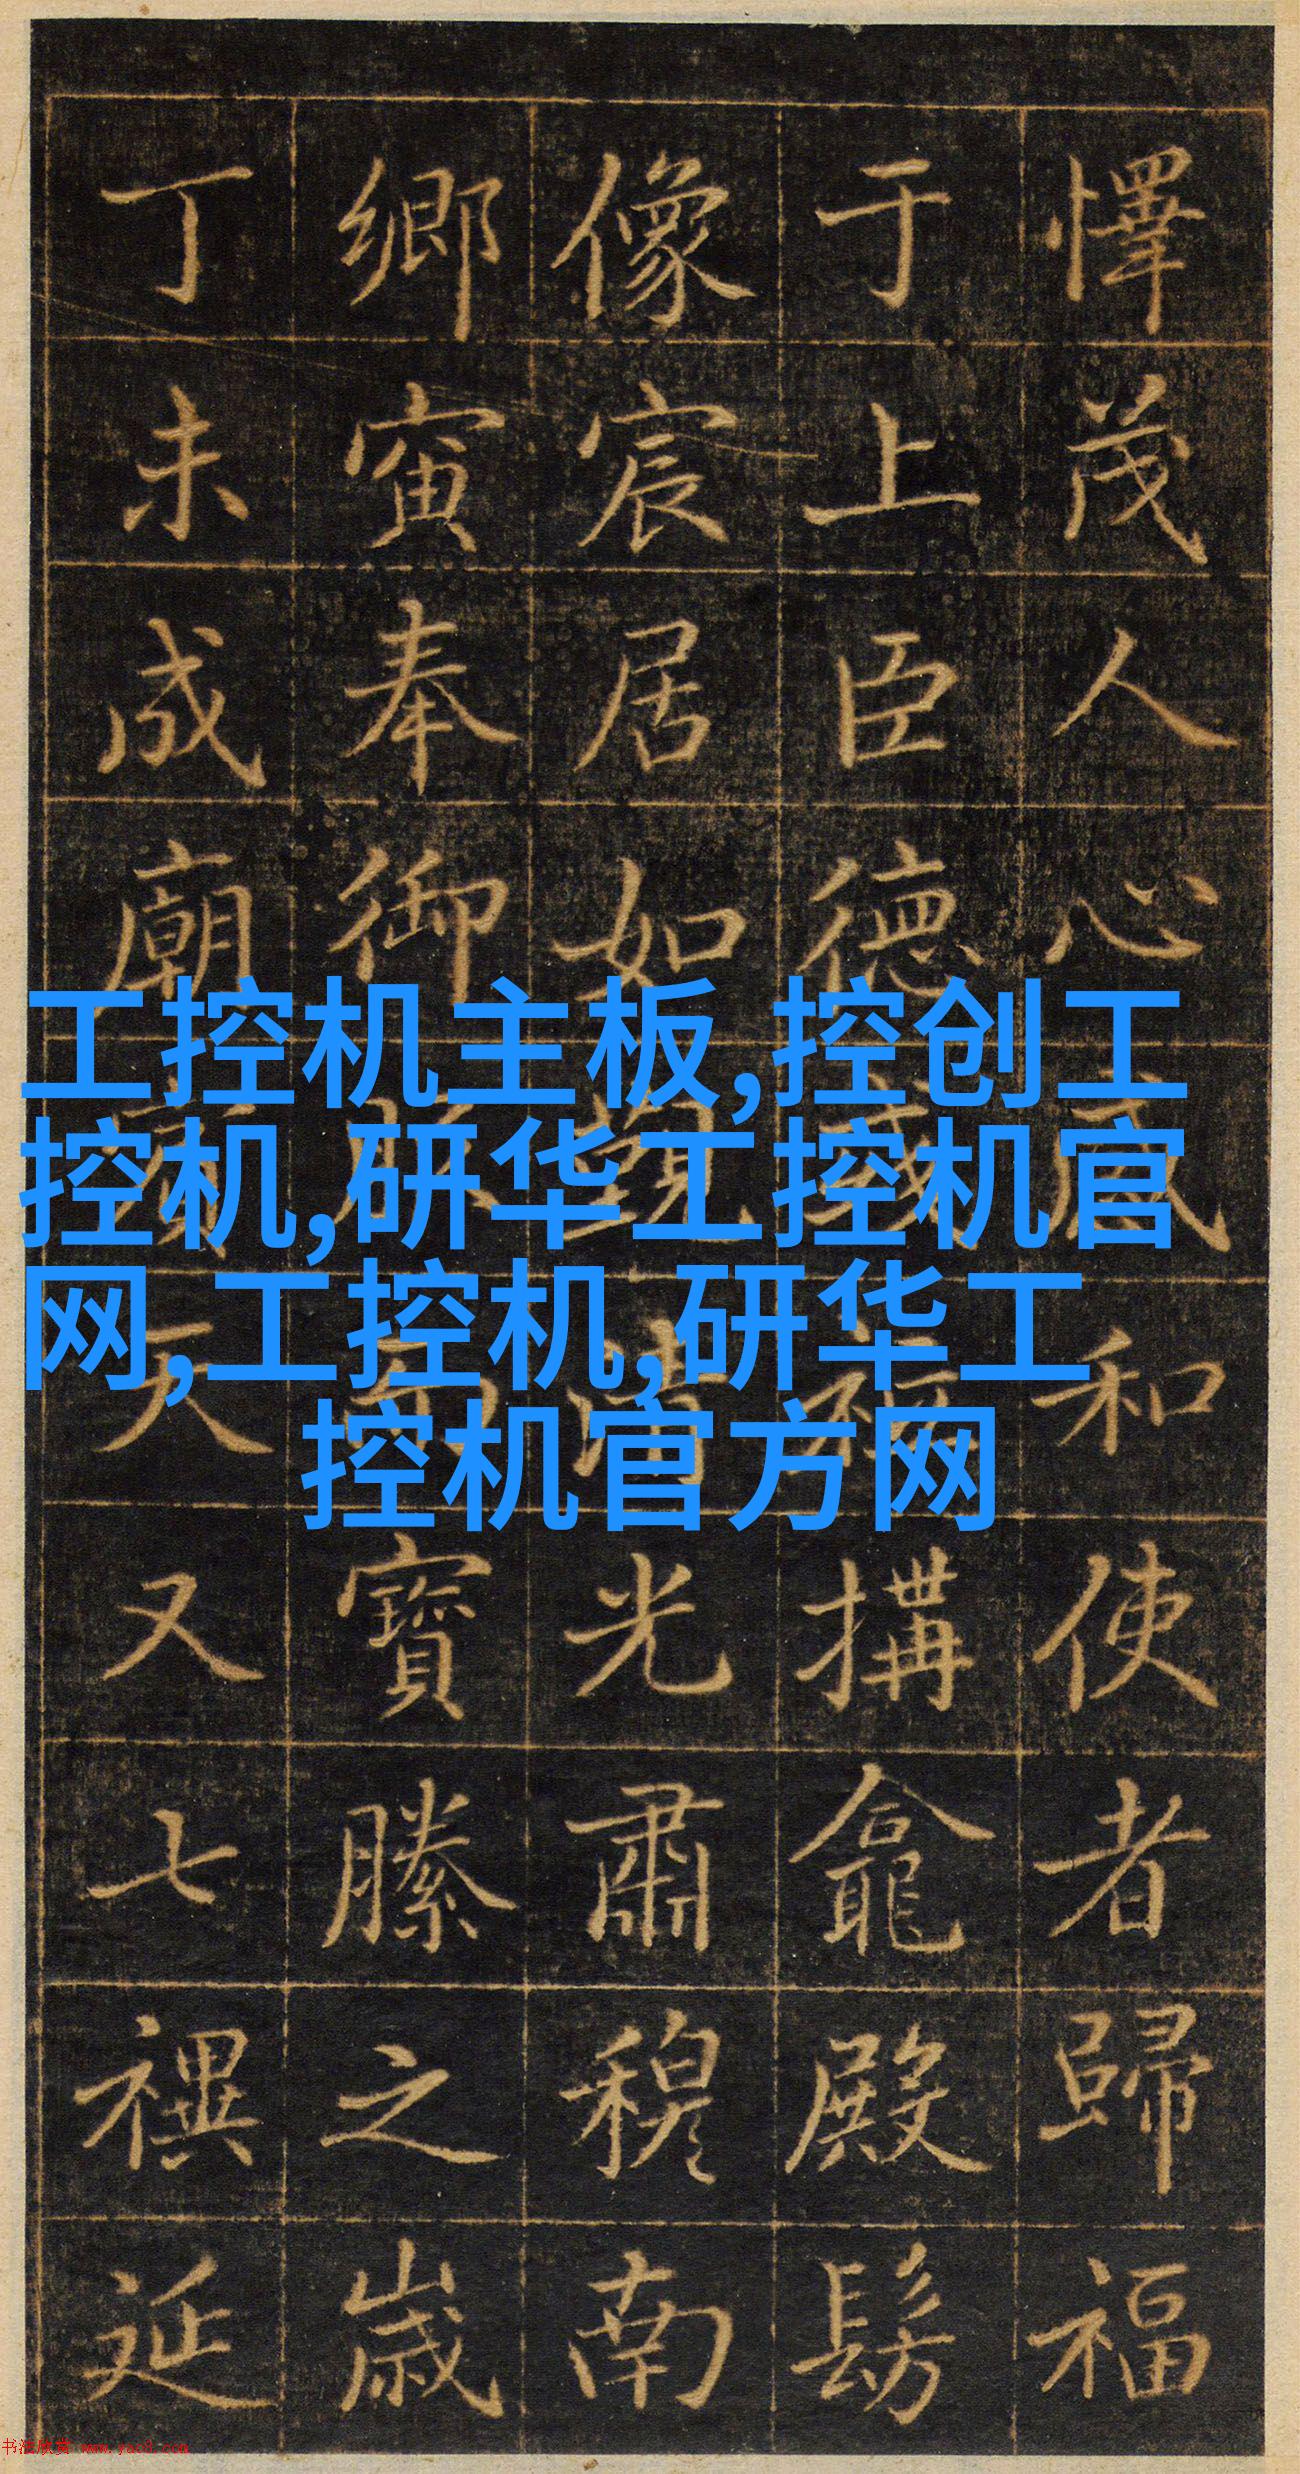 懌茂人心和使者歸福
于上臣德搆龕殿髣
像宸居如覩清光肅穆南
鄉寅奉御寶縢之歳
丁未成廟天又七禩延
工控机主板,控创工
控机,研华工控机官
网,工控机,研华工
控机官方网
书法欣赏 www.yac8.com